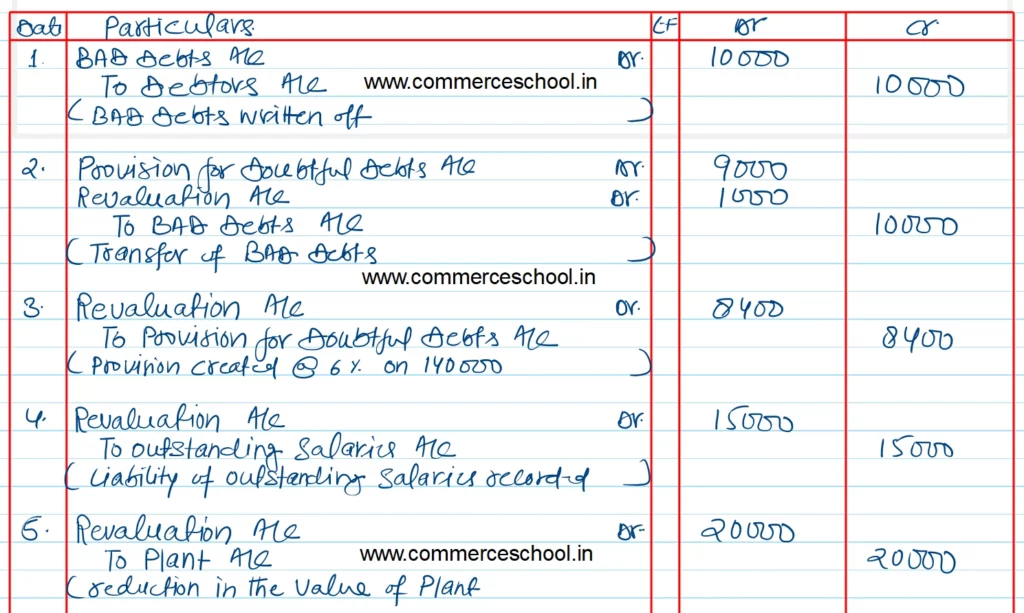 Date Particulars. LF Dr Cr
1. BAD Debts A/c Dr. 10000
To Debtors A/c www.commerceschool.in 10000
( BAD Debts written off )
2. Provision for Doubtful Debts A/c Dr. 9000
Revaluation A/c Dr. 1000
To BAD Debts A/c 10000
( Transfer of BAD Debts )
www.commerceschool.in
3. Revaluation A/c Dr. 8400
To Provision for Doubtful Debts A/c 8400
( Provision created @ 6 % on 140000 )
4. Revaluation A/c Dr. 15000
To outstanding salaries A/c 15000
( Liability of outstanding salaries recorded )
5. Revaluation A/c Dr- 20000
To Plant A/c www.commerceschool.in 20000
( reduction in the value of Plant